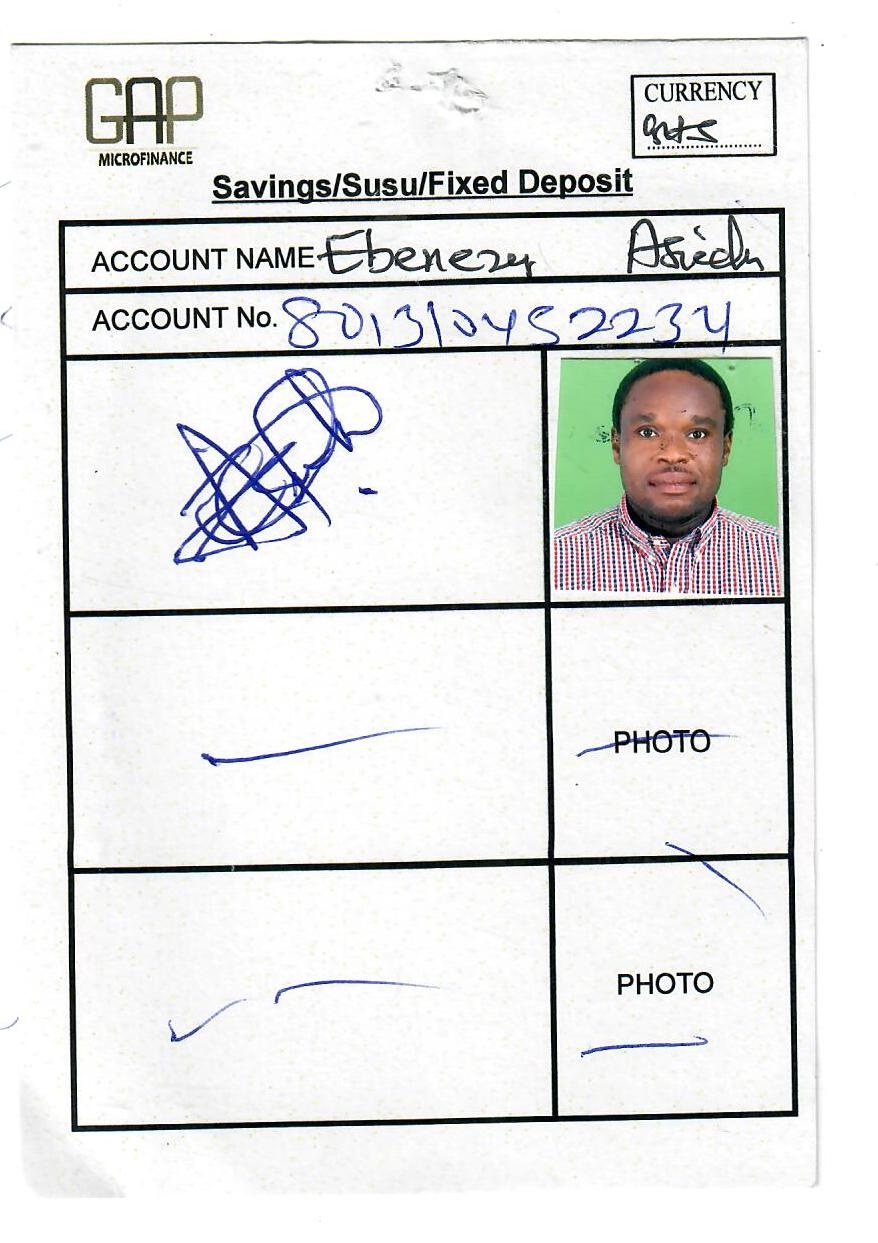 GAP
MICROFINANCE
CURRENCY
GHS
Savings/Susu/Fixed Deposit
ACCOUNT NAME Ebenezer Asiedu
ACCOUNT No. 8013104552234
PHOTO
PHOTO